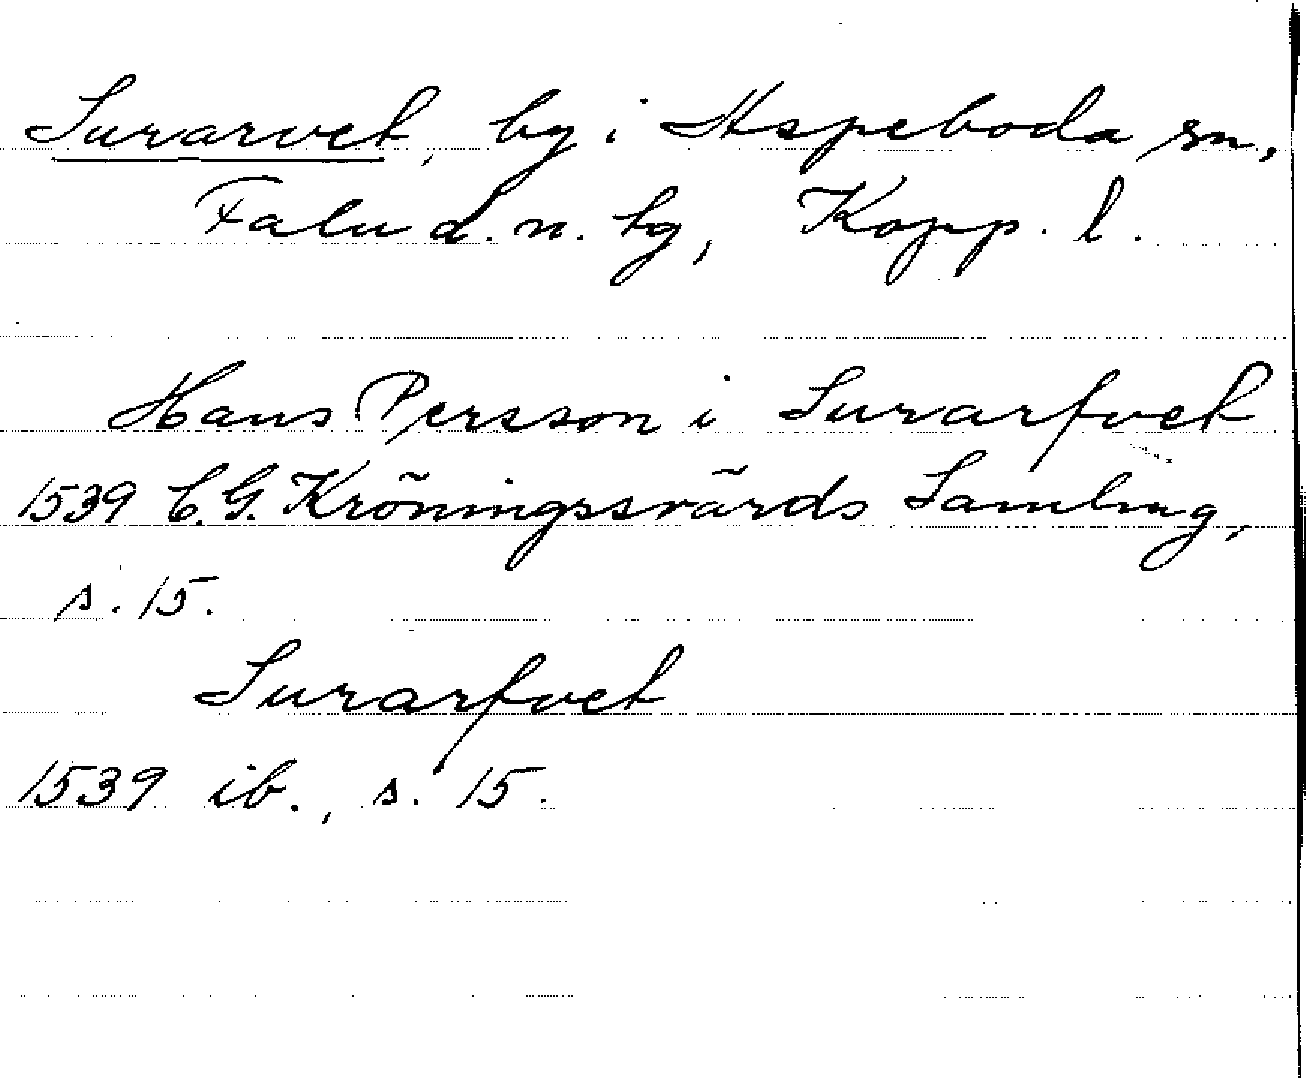 Surarvet, by i Aspeboda sn,
Falu d. n. tg, Kopp. l.
Hans Persson i Surarfvet
1539 C.G. Kröningssvärds Samling,
s. 15.
Surarfvet
1539 ib., s. 15.